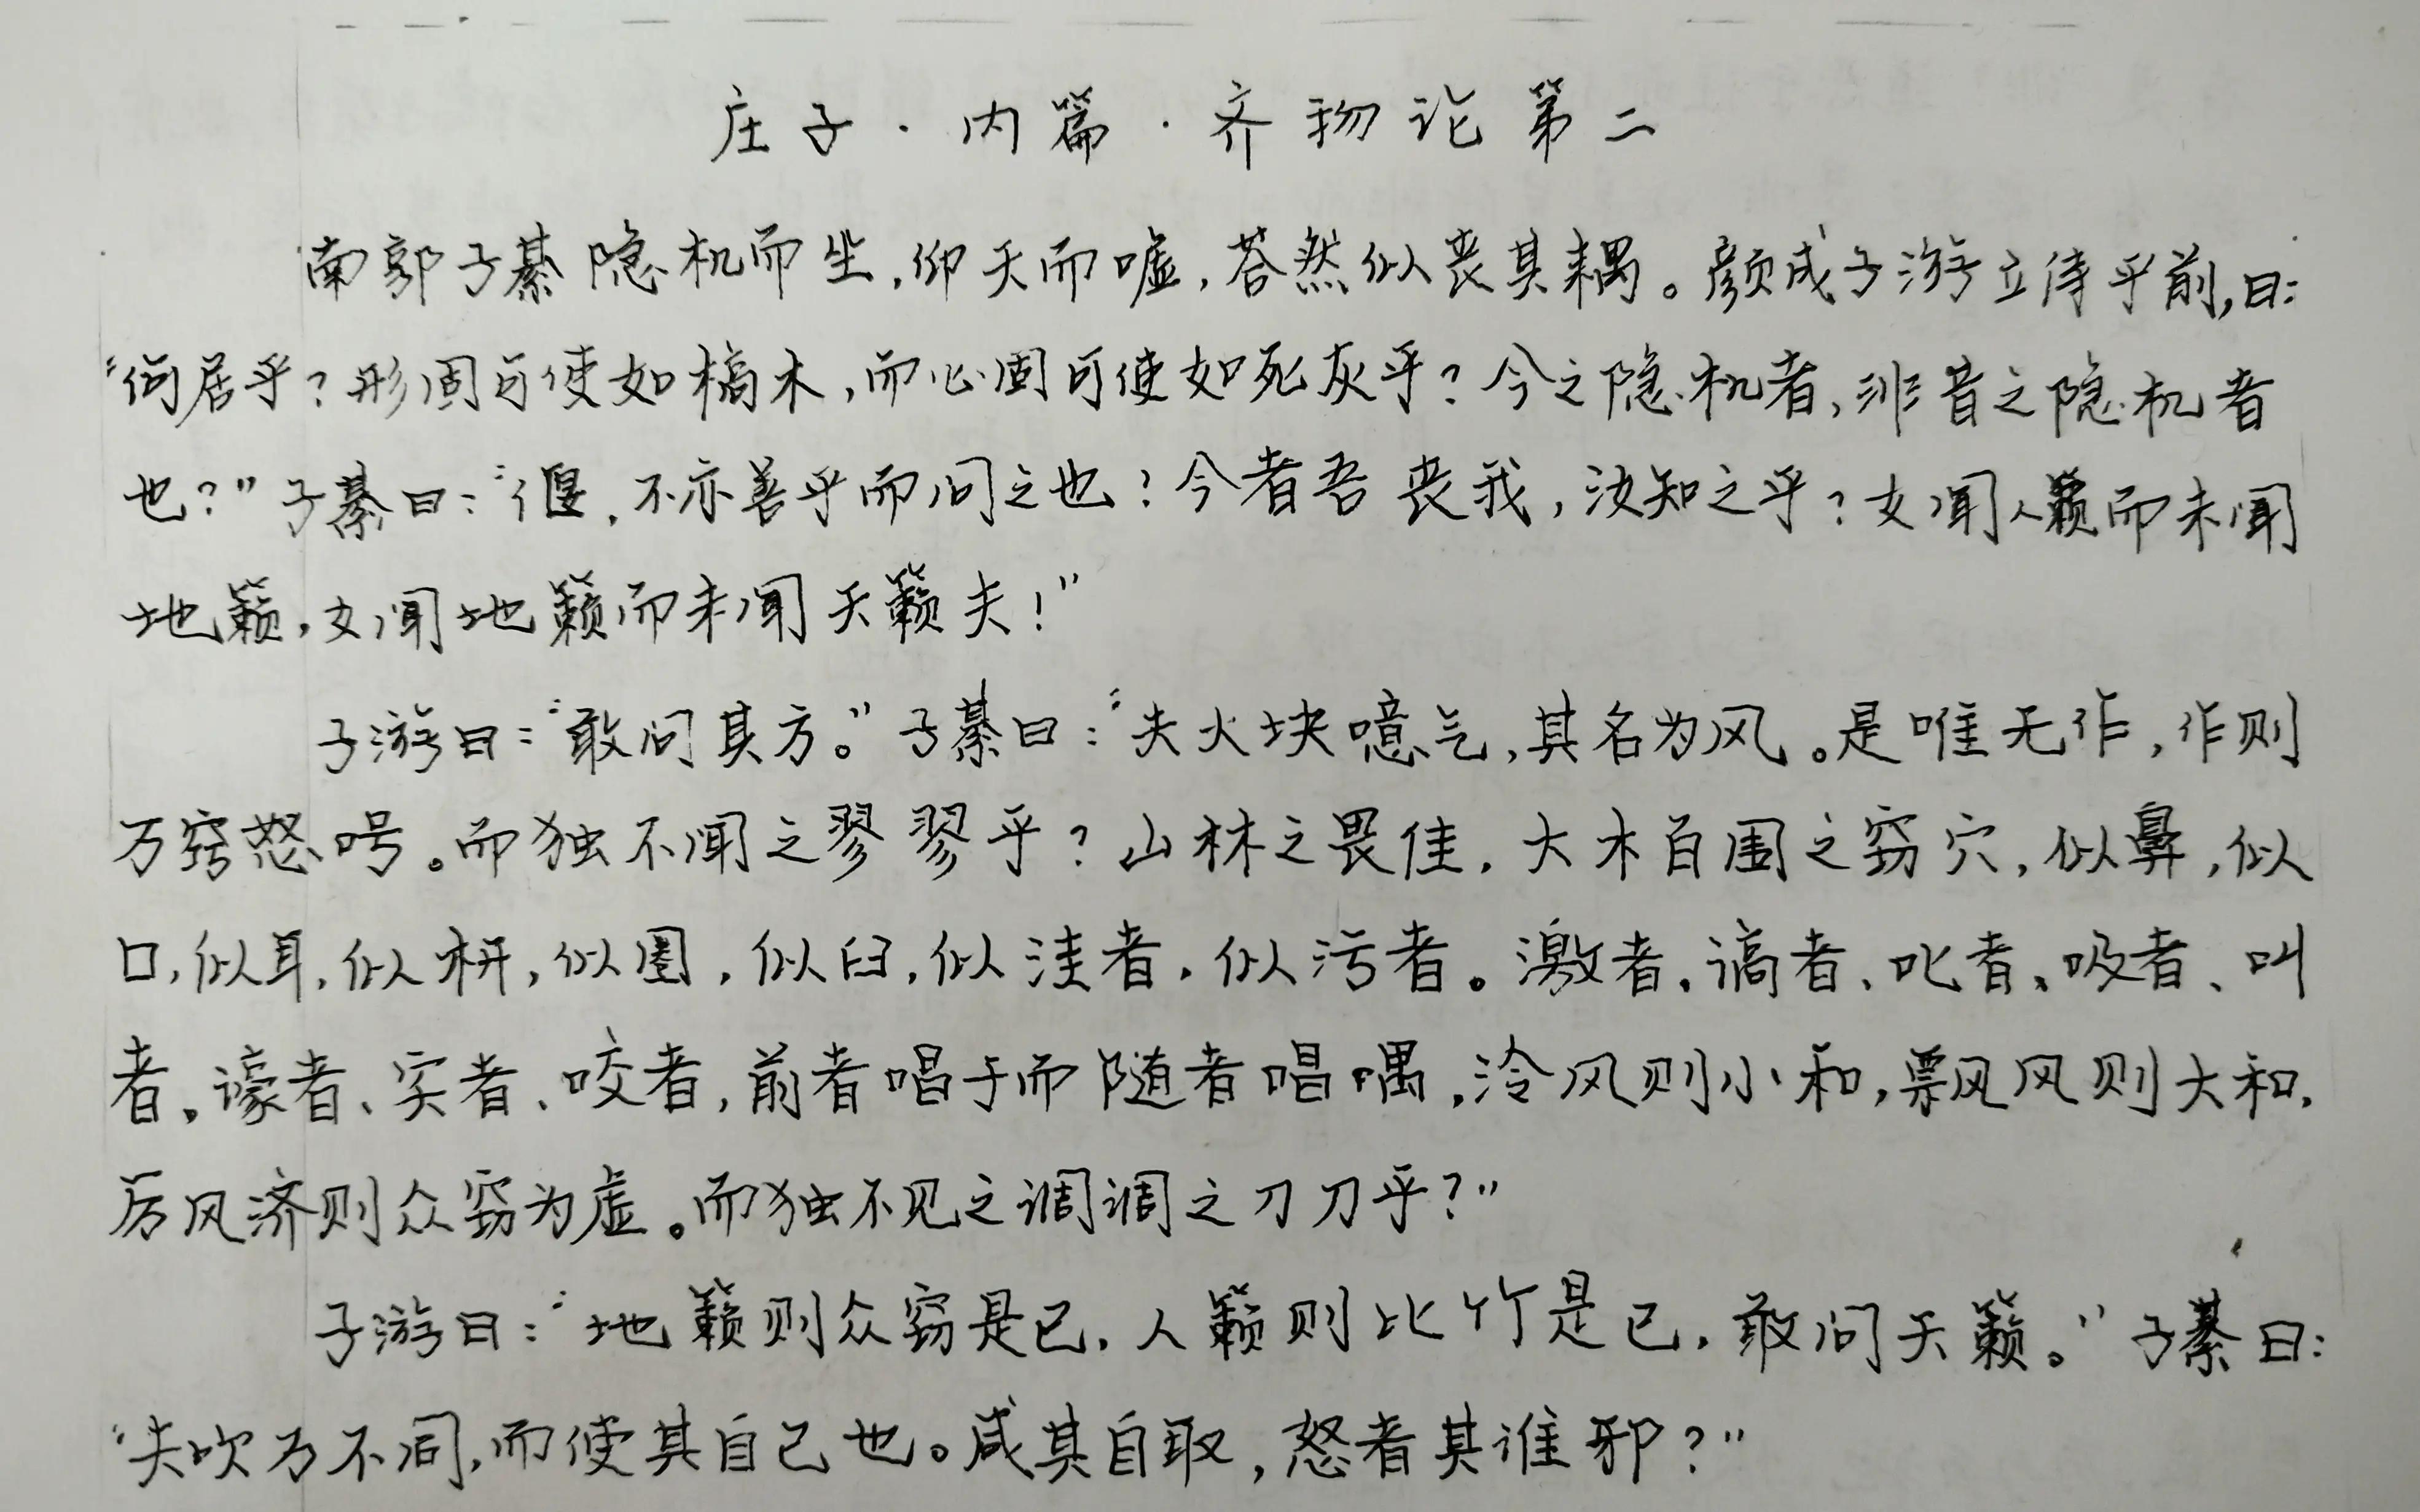 庄子·内篇·齐物论第二
南郭子綦隐机而坐,仰天而嘘,荅然似丧其耦。颜成子游立侍乎前,曰:
“何居乎?形固可使如槁木,而心固可使如死灰乎?今之隐机者,非昔之隐机者
也?”子綦曰:“偃,不亦善乎而问之也?今者吾丧我,汝知之乎?女闻人籁而未闻
地籁,女闻地籁而未闻天籁夫!”
子游曰:“敢问其方。”子綦曰:“夫大块噫气,其名为风。是唯无作,作则
万窍怒呺。而独不闻之翏翏乎?山林之畏佳,大木百围之窍穴,似鼻,似
口,似耳,似枅,似圈,似臼,似洼者,似污者。激者、謞者、叱者、吸者、叫
者、譹者、宎者、咬者,前者唱于而随者唱喁,泠风则小和,飘风则大和,
厉风济则众窍为虚。而独不见之调调之刀刀乎?”
子游曰:“地籁则众窍是已,人籁则比竹是已,敢问天籁。”子綦曰:
“夫吹万不同,而使其自己也。咸其自取,怒者其谁邪?”